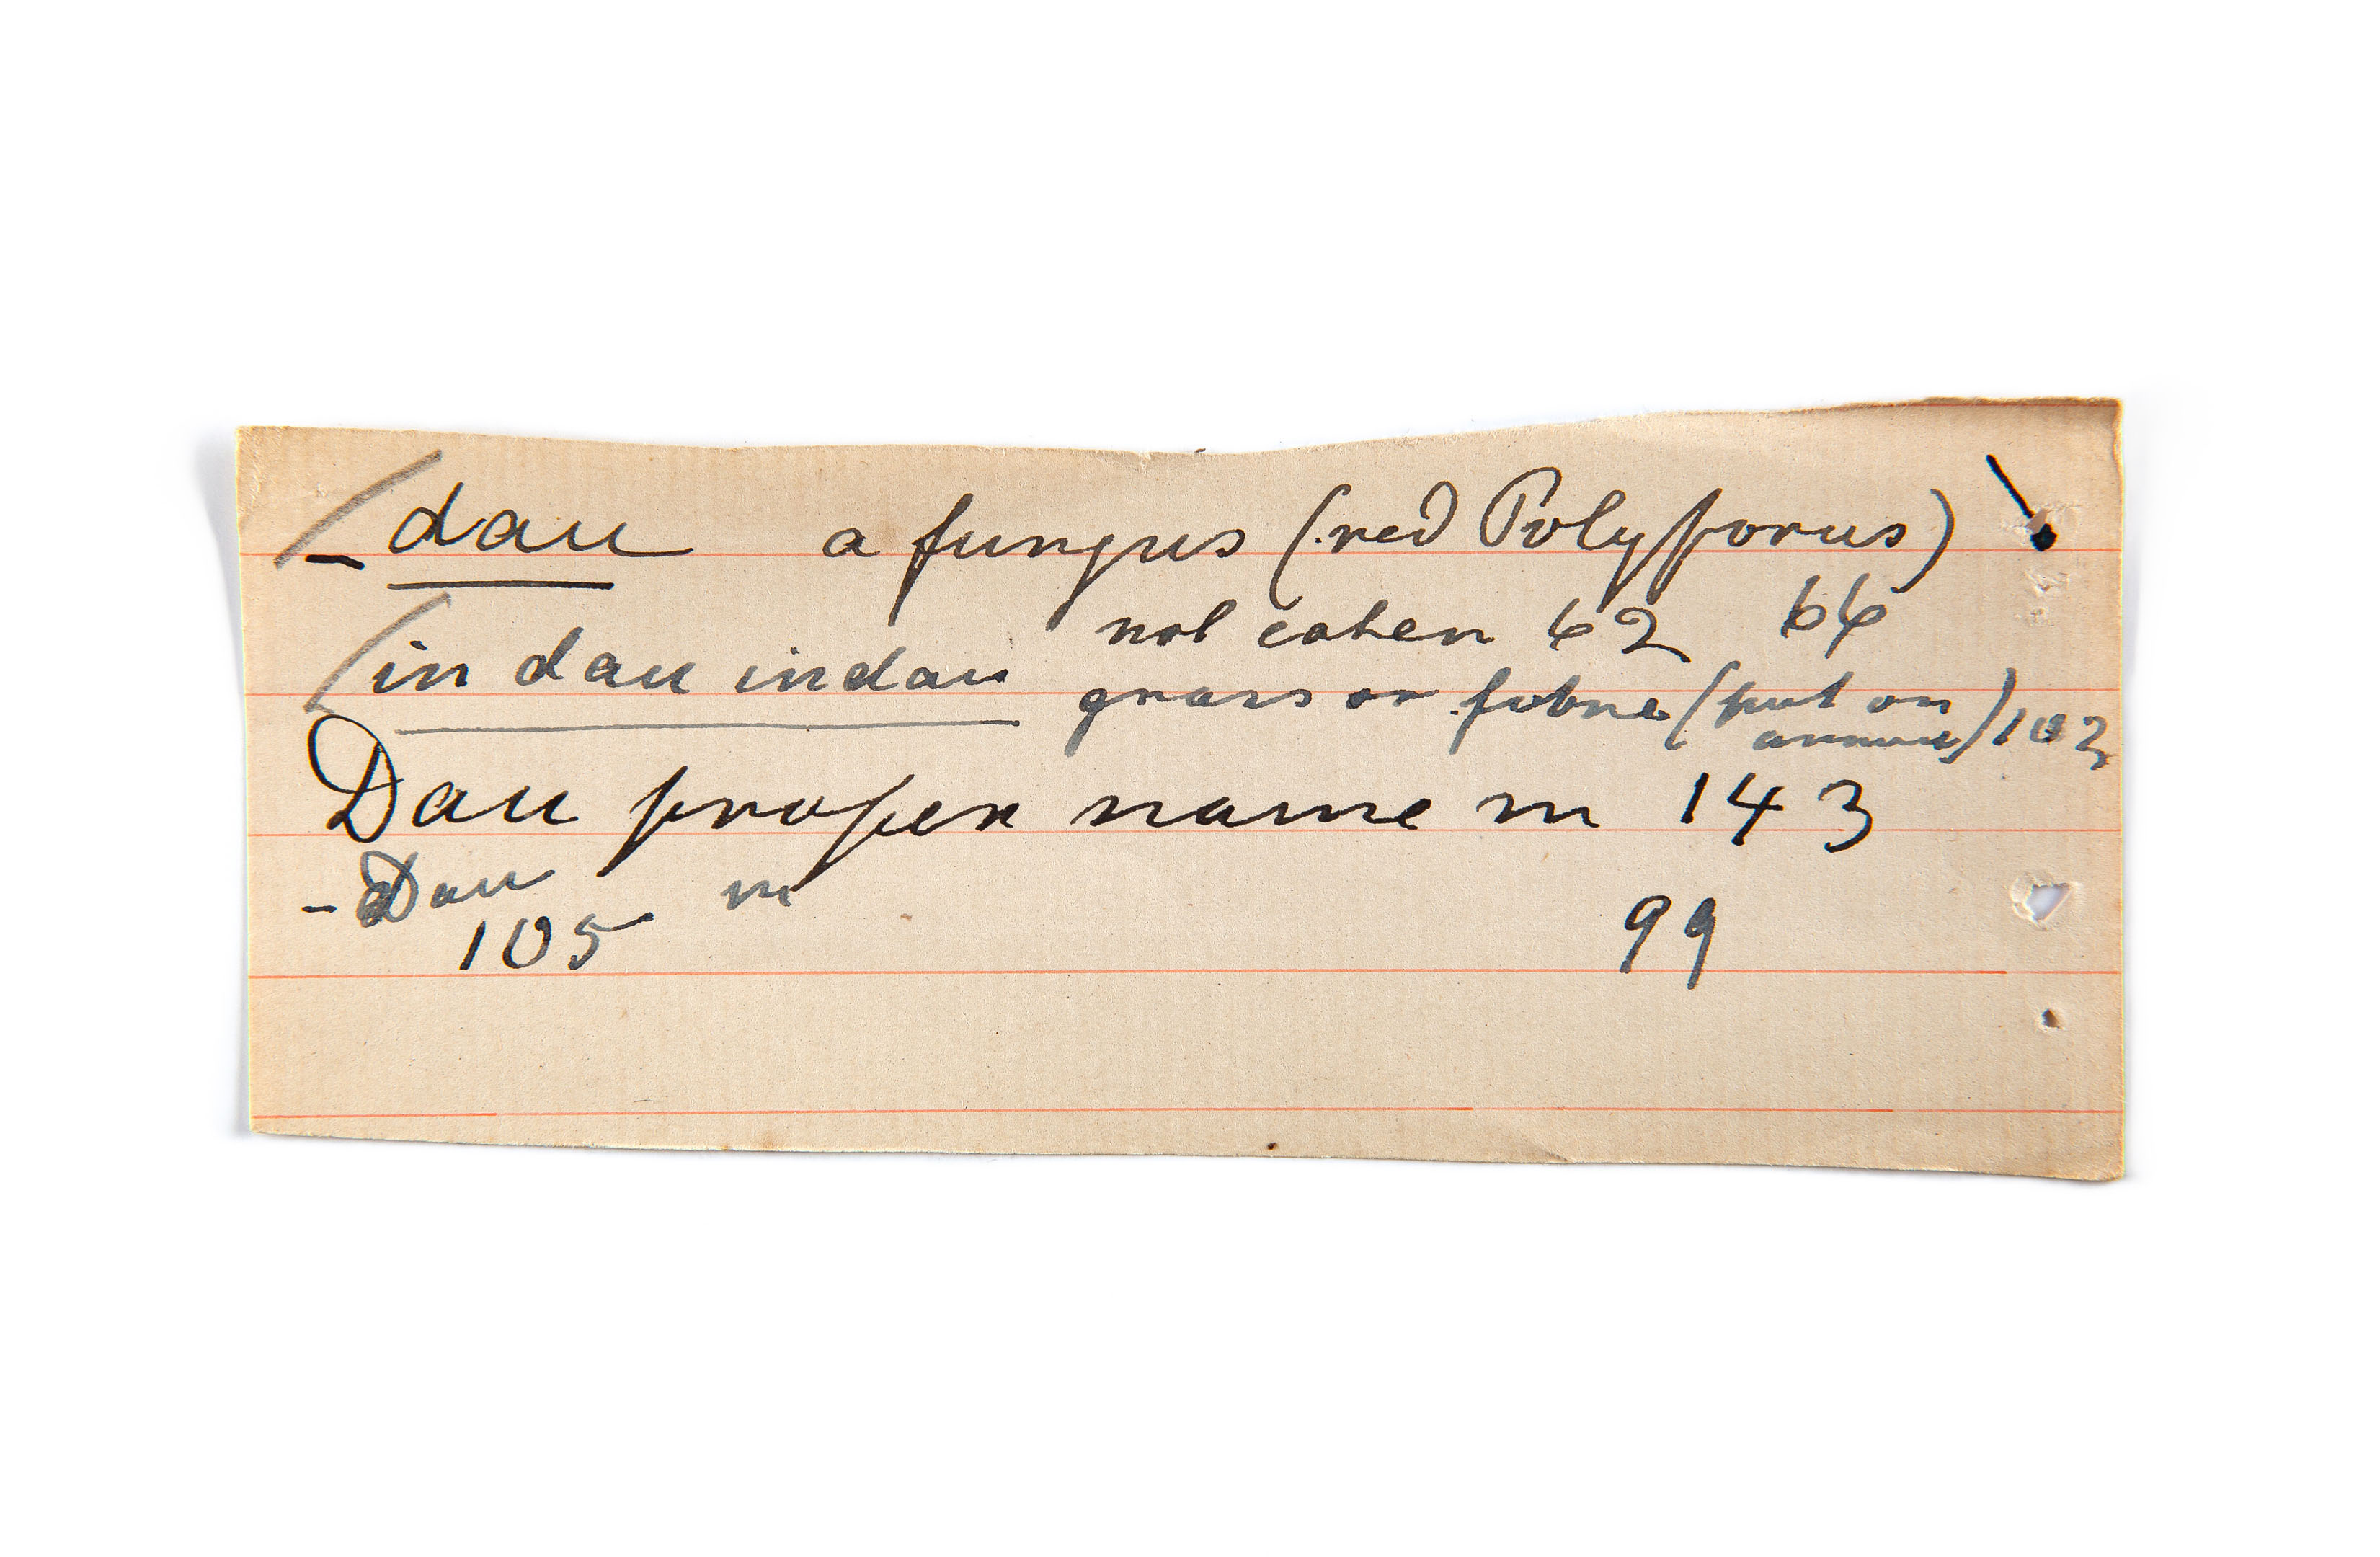 dau a fungus (red Polyporus)
not eaten 62 66
in dau indau grass or fibre (put on
arrows) 102
Dau proper name m 143
- Dau m
105 99